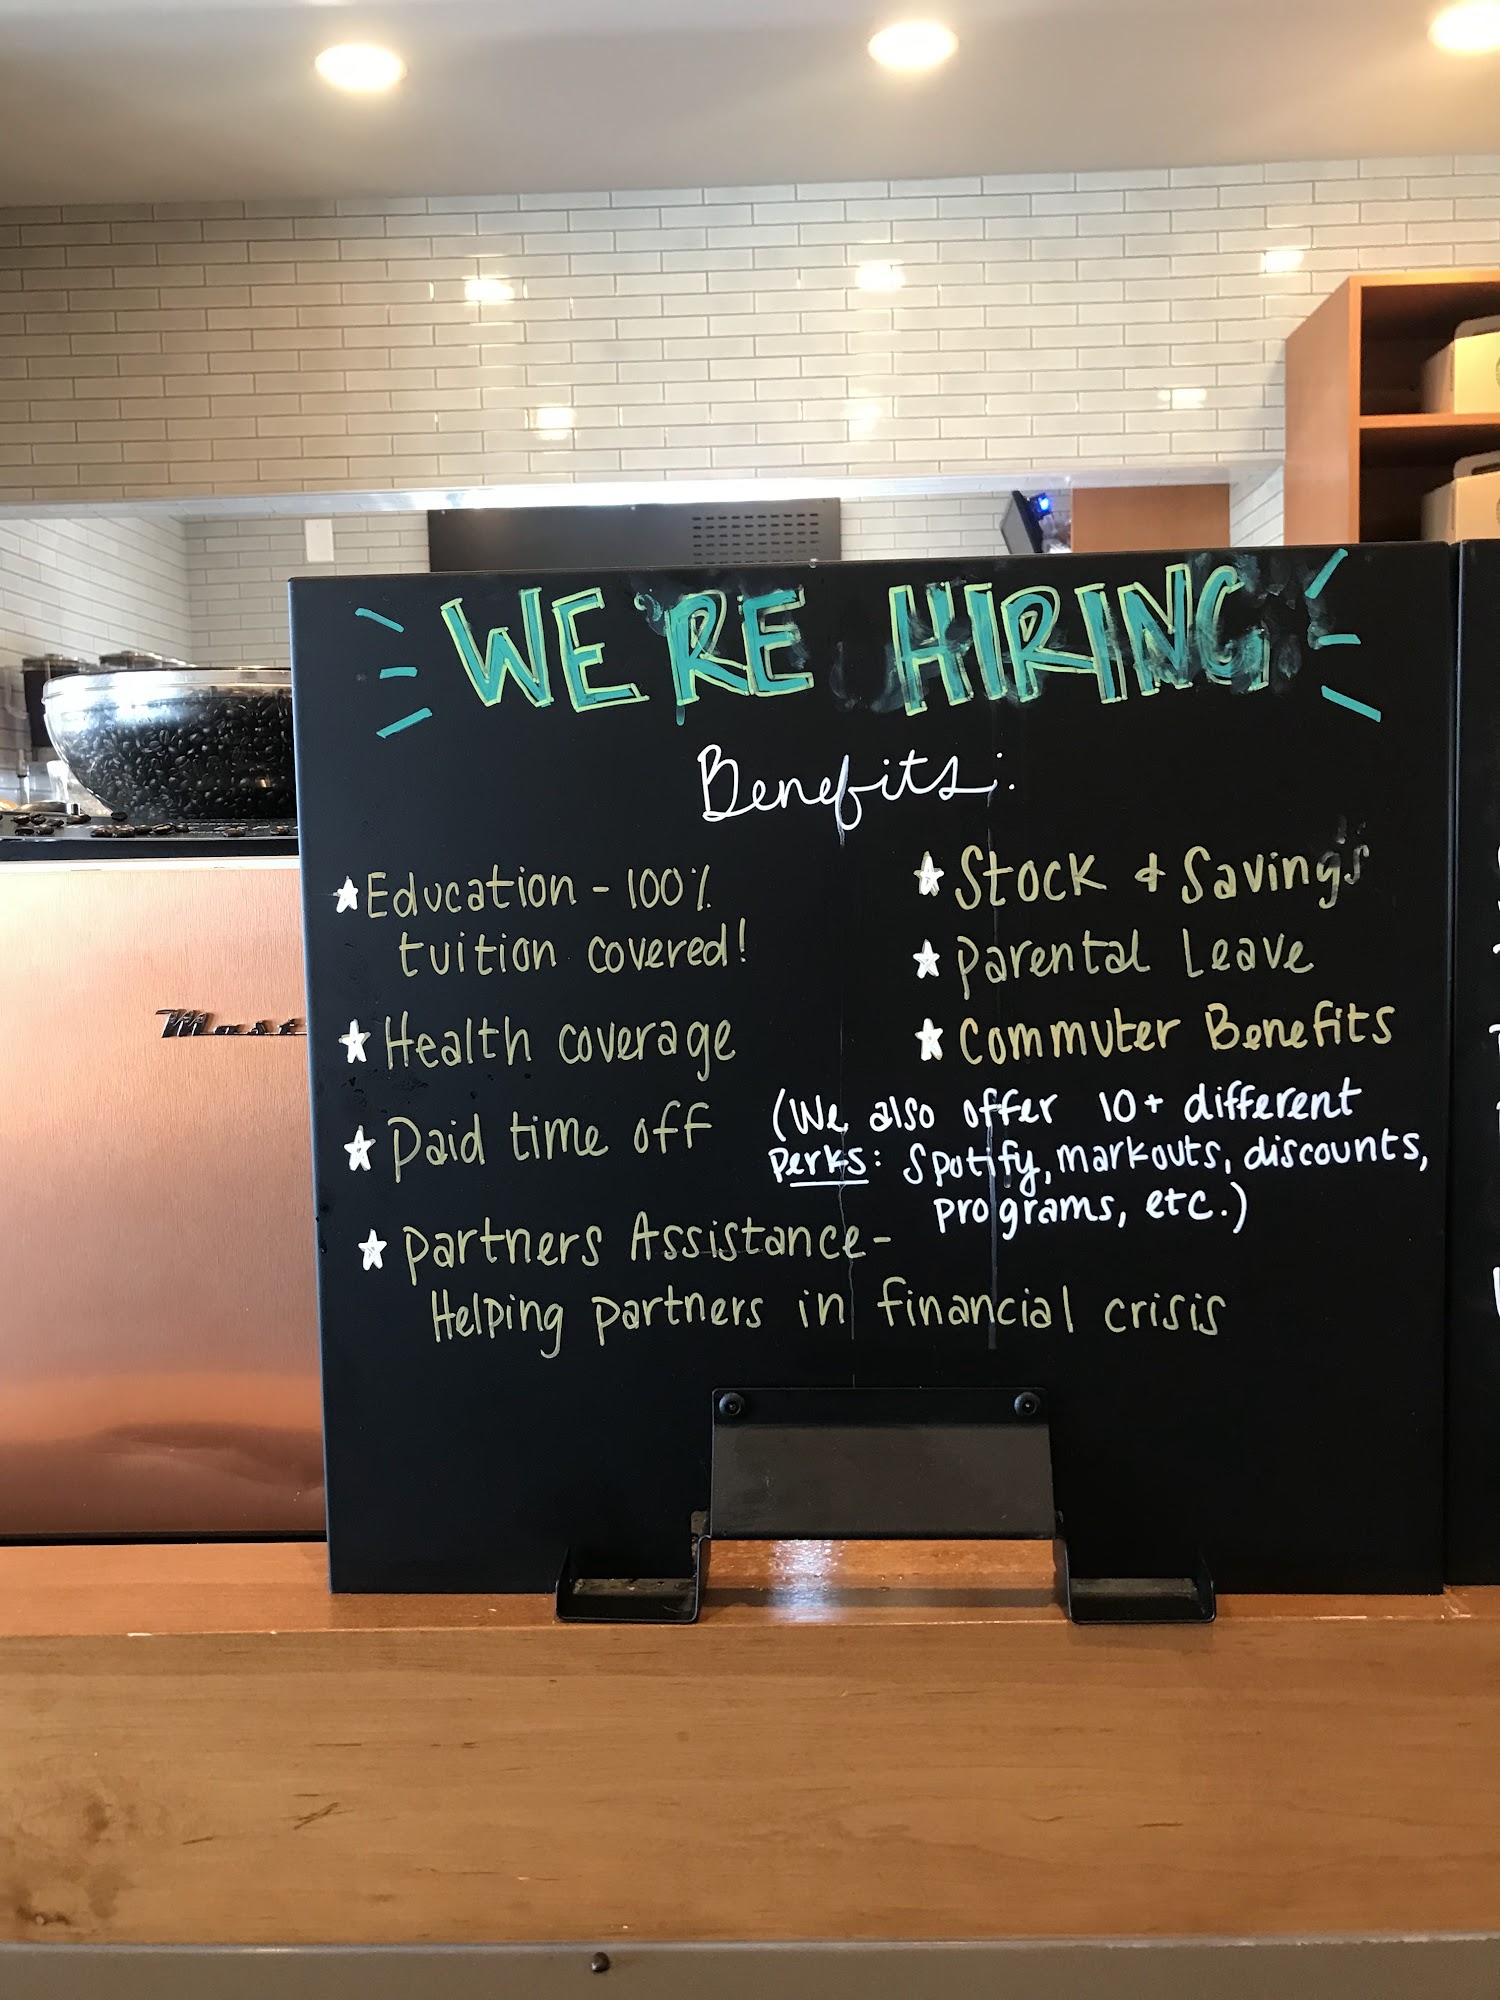 WE'RE HIRING
Benefits:
Education - 100%
tuition covered!
Health coverage
Paid time off
Partners Assistance -
Helping partners in financial crisis
Stock & Savings
Parental Leave
Commuter Benefits
(We also offer 10+ different
perks: Spotify, markouts, discounts,
programs, etc.)